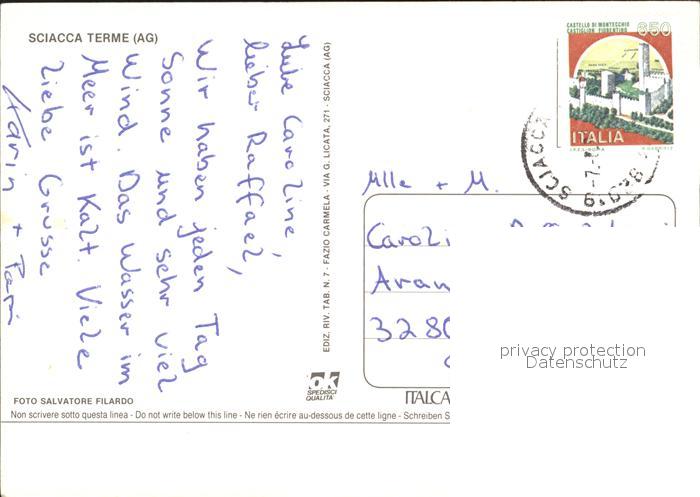 SCIACCA TERME (AG)
Liebe Caroline,
lieber Raffael,
Wir haben jeden Tag
Sonne und sehr viel
Wind. Das Wasser im
Meer ist Kalt. Viele
Liebe Grüsse
Karin + Papi
FOTO SALVATORE FILARDO
EDIZ. RIV. TAB. N. 7 - FAZIO CARMELA - VIA G. LICATA, 271 - SCIACCA (AG)
CASTELLO DI MONTECCHIO
CASTIGLION FIORENTINO
650
ITALIA
SCIACCA
Mlle + M.
Caroli
Aran
3280
privacy protection
Datenschutz
ok
SPEDISCI
QUALITÀ
ITALCA
Non scrivere sotto questa linea - Do not write below this line - Ne rien écrire au-dessous de cette ligne - Schreiben S